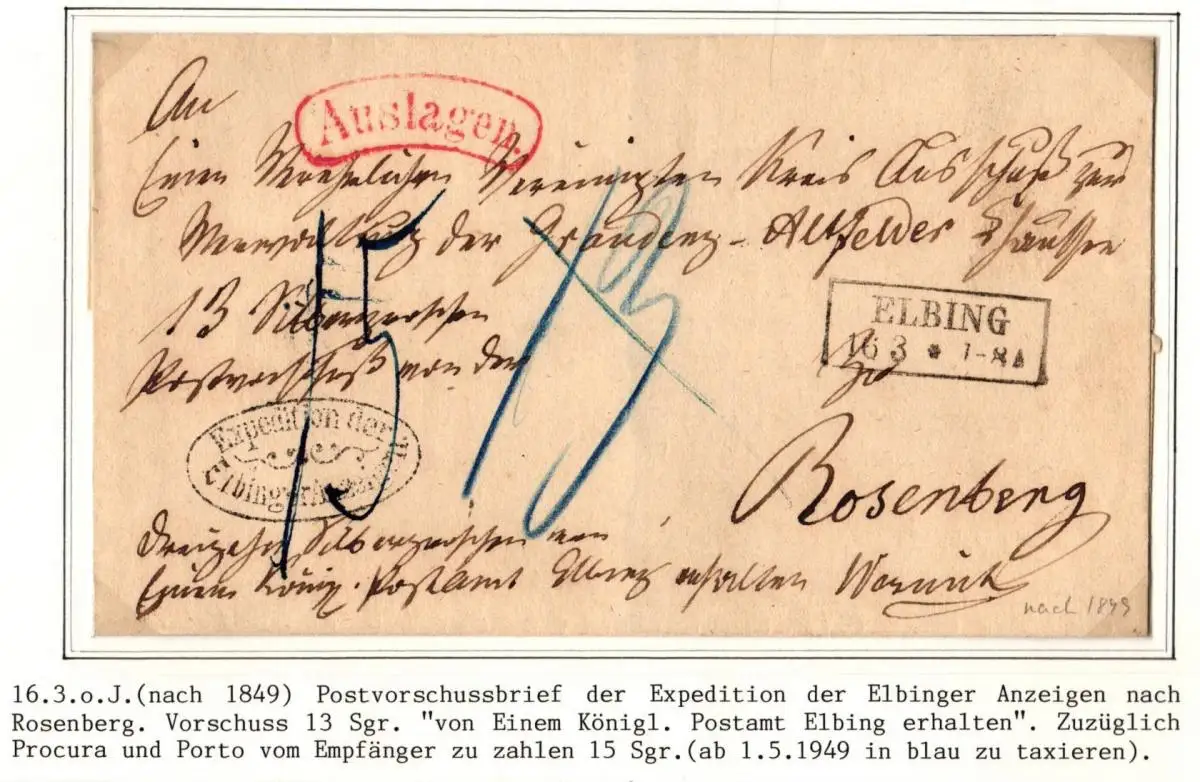 An
Auslagen.
Einen Wohllöblichen Vereinigten Kreis Ausschuß zur
Verwaltung der Graudenz-Altfelder Chaussee
15
13
13 Silbergroschen
Postvorschuß von der
ELBING
16 3 * 7-8
Expedition der
Elbinger Anz
Zu
Rosenberg
Dreizehn Silbergroschen von
Einem König. Postamt Elbing erhalten
nach 1849
16.3.o.J.(nach 1849) Postvorschussbrief der Expedition der Elbinger Anzeigen nach
Rosenberg. Vorschuss 13 Sgr. "von Einem Königl. Postamt Elbing erhalten". Zuzüglich
Procura und Porto vom Empfänger zu zahlen 15 Sgr.(ab 1.5.1949 in blau zu taxieren).